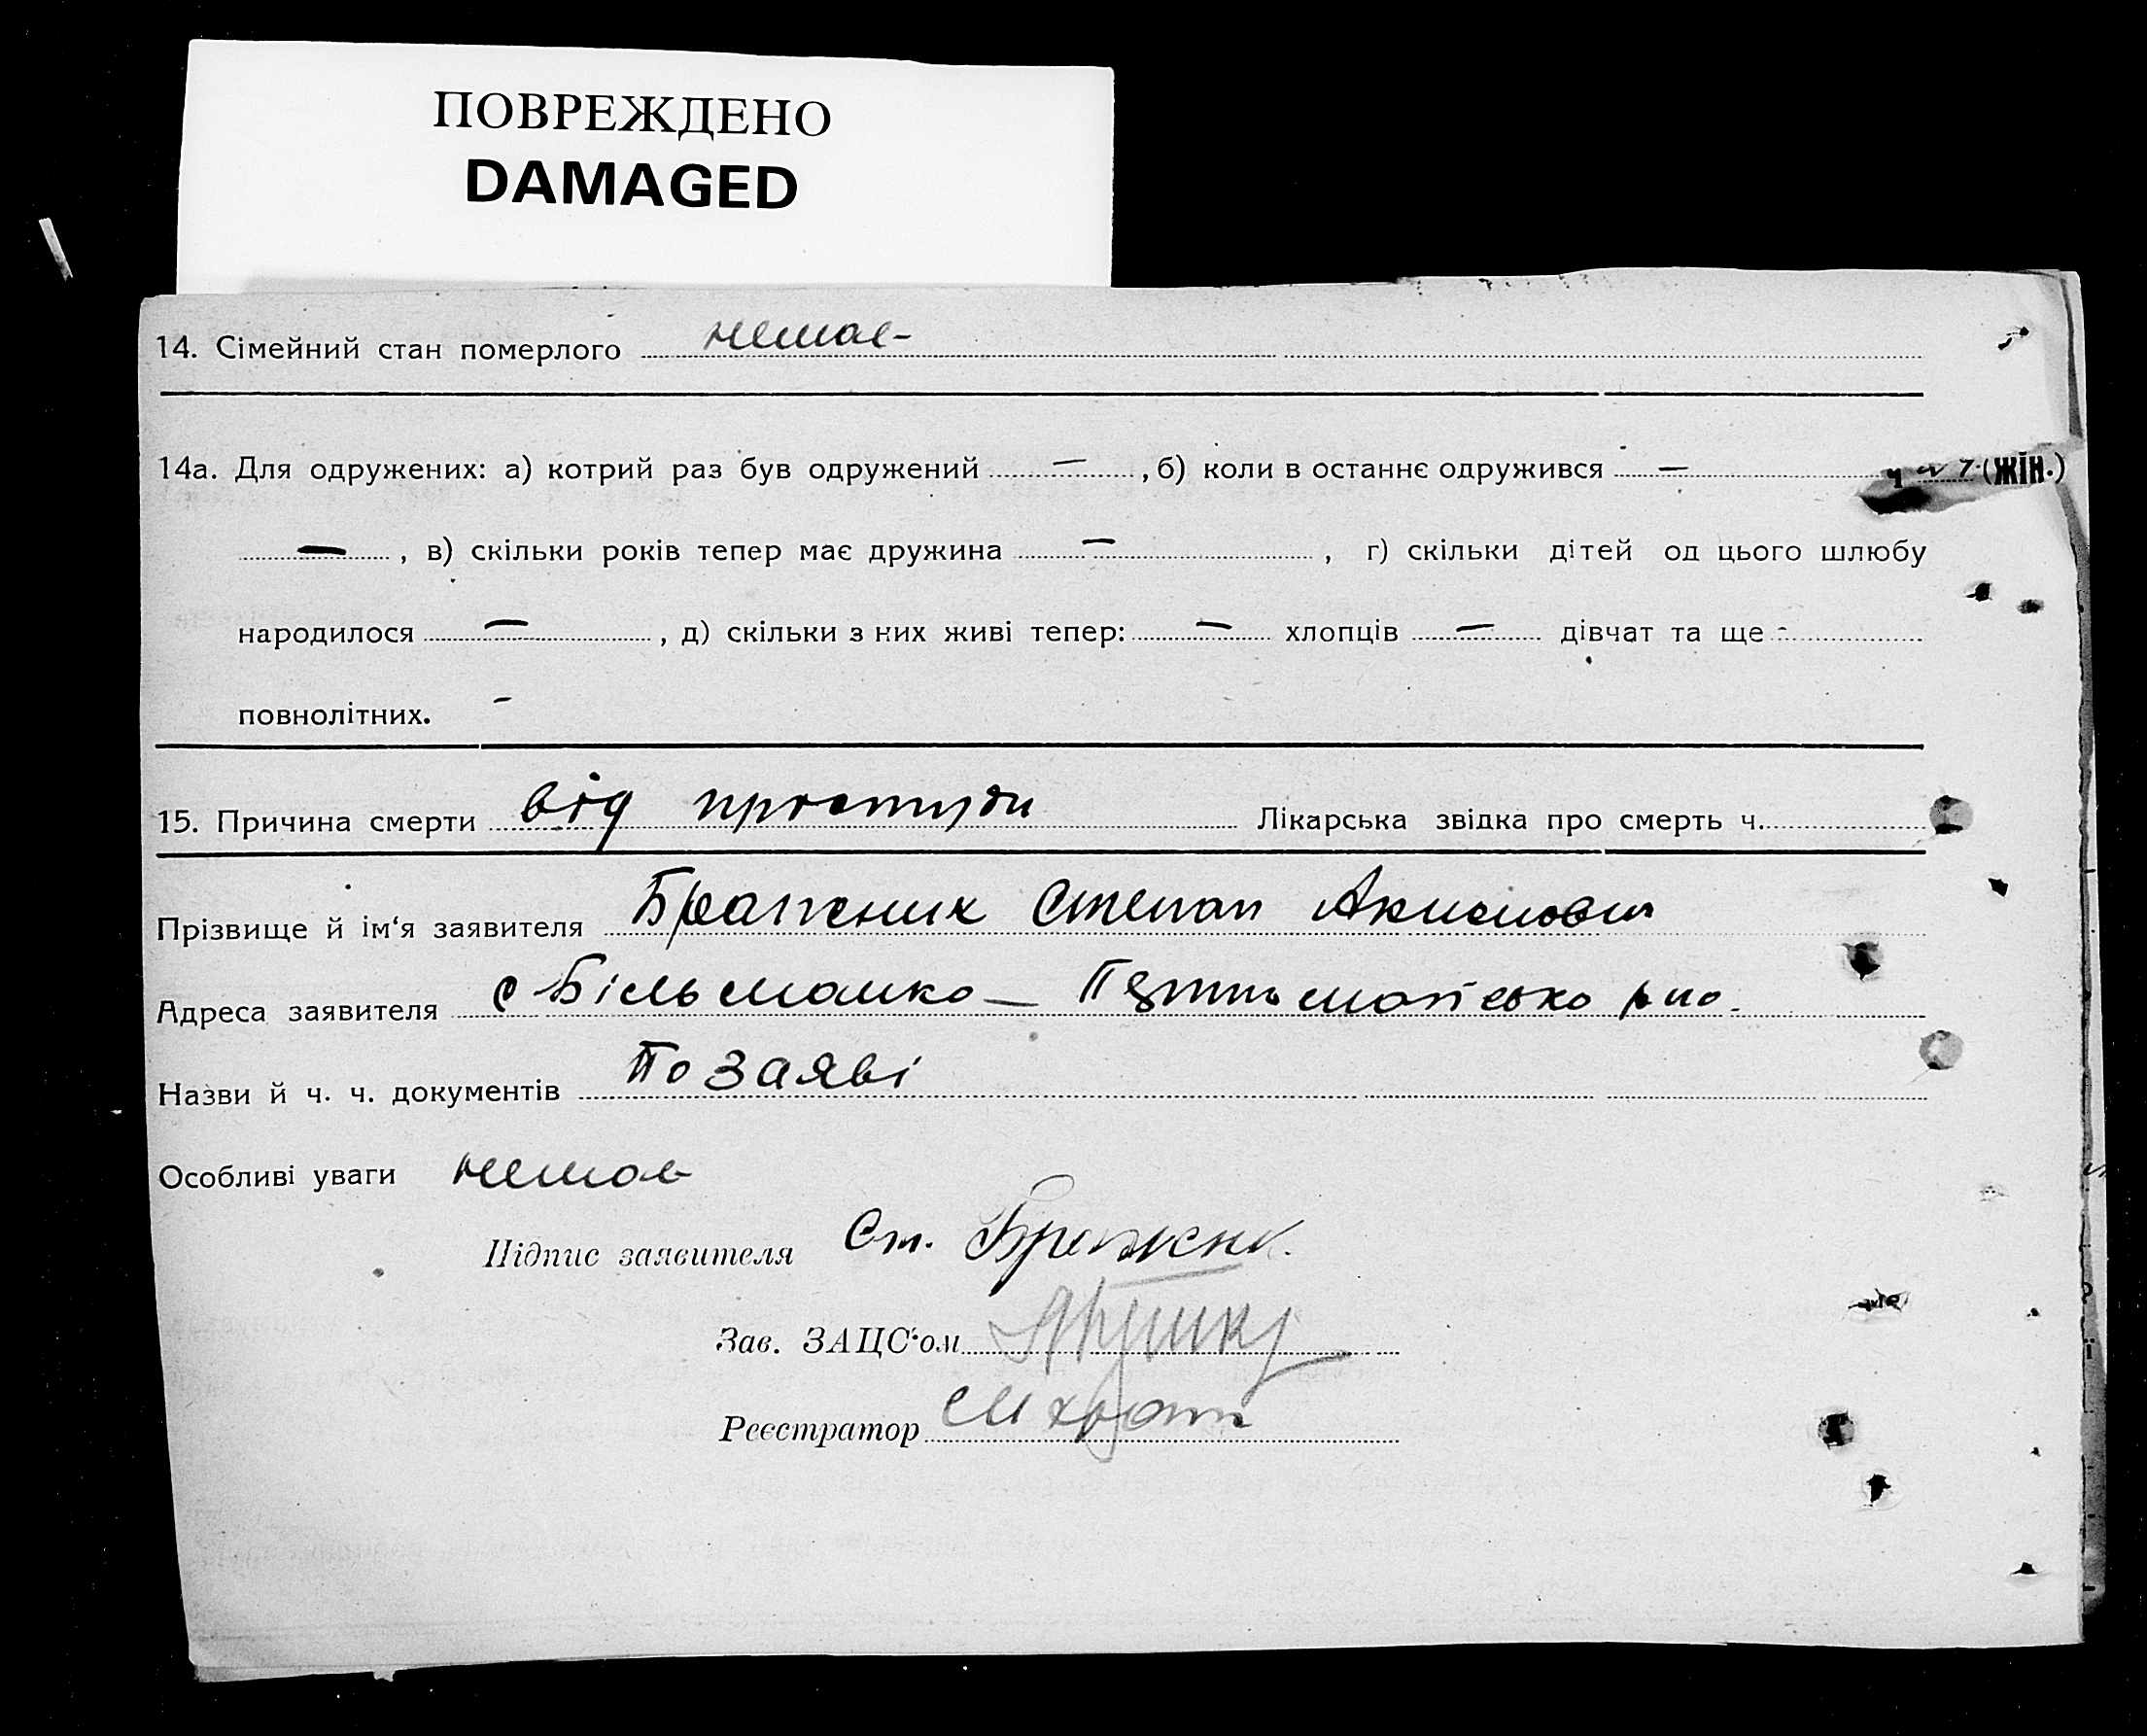 ПОВРЕЖДЕНО
DAMAGED
14. Сімейний стан померлого немає-
14а. Для одружених: а) котрий раз був одружений — , б) коли в останнє одружився — (жін.)
— , в) скільки років тепер має дружина — , г) скільки дітей од цього шлюбу
народилося — , д) скільки з них живі тепер: — хлопців — дівчат та ще -
повнолітних. -
15. Причина смерти від простуди Лікарська звідка про смерть ч.
Прізвище й ім‘я заявителя Бражник Степан Акимович
Адреса заявителя с Більманко —
Назви й ч. ч. документів По заяві
Особливі уваги немає
Підпис заявителя Ст. Бражник.
Зав. ЗАЦС‘ом
Реєстратор